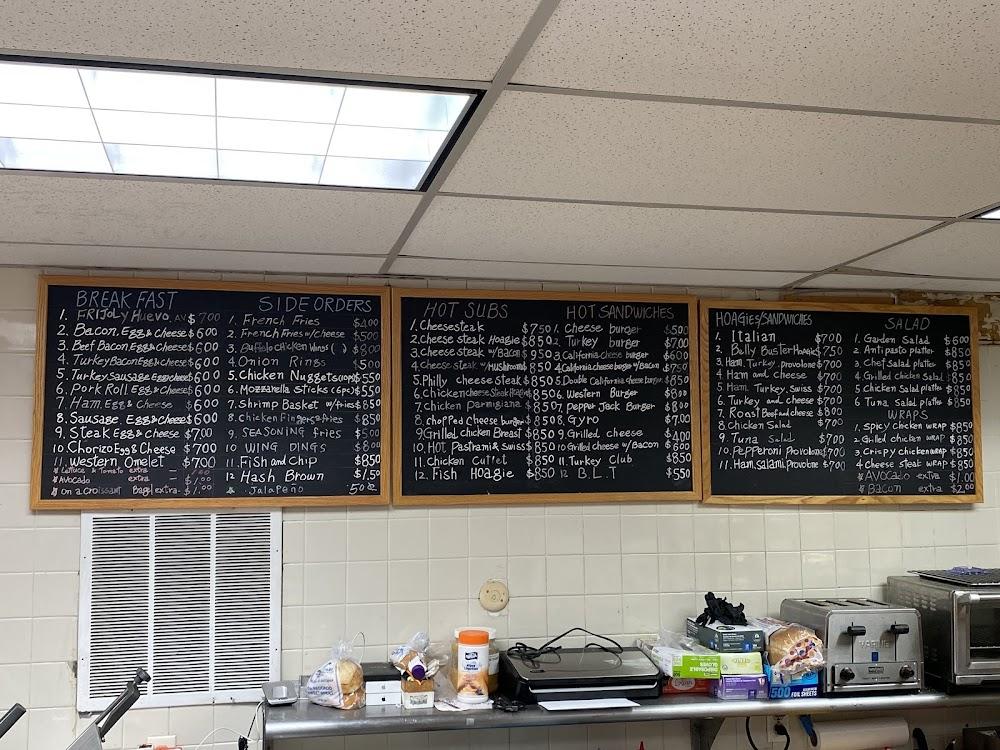 BREAKFAST
1. FRIJOLY Huevo. AV $700
2. Bacon, Egg & Cheese $600
3. Beef Bacon Egg & Cheese $600
4. Turkey Bacon Egg & Cheese $600
5. Turkey Sausage, Egg cheese $600
6. Pork Roll Egg & Cheese $600
7. Ham, Egg & Cheese $600
8. Sausage, Egg & Cheese $600
9. Steak Egg & Cheese $700
10. Chorizo Egg & Cheese $700
11. Western Omelet $700
* Lettuce & Tomato extra - 1.00
* Avocado extra - $1.00
* on a croissant Bagel extra - $1.00
SIDE ORDERS
1. French Fries $400
2. French Fries w/Cheese $500
3. Buffalo chicken Wings ( ) $800
4. Onion Rings $500
5. Chicken Nuggets (10PC) $550
6. Mozzarella Sticks (6pc) $550
7. Shrimp Basket w/fries $850
8. Chicken Fingers & Fries $850
9. SEASONING fries $500
10. WING DINGS $800
11. Fish and Chip $850
12 Hash Brown $1.50
Jalapeño .50
HOT SUBS
1. Cheesesteak $750
2. cheese steak Hoagie $850
3. cheese steak w/Bacon $950
4. cheese steak w/Mushroom $850
5. Philly cheese steak $850
6. Chicken cheese steak Hoagie $850
7. Chicken Parmigiana $850
8. chopped cheese burger $850
9. Grilled Chicken Breast $850
10. HOT Pastrami & Swiss $850
11. Chicken Cutlet $850
12. Fish Hoagie $850
HOT SANDWICHES
1. Cheese burger $500
2. Turkey burger $700
3. California cheese burger $600
4. California cheese burger w/Bacon $750
5. Double California cheese burger $850
6. Western Burger $800
7. Pepper Jack Burger $800
8. Gyro $700
9. Grilled cheese $400
10. Grilled cheese w/Bacon $600
11. Turkey Club $850
12 B.L.T $550
HOAGIES/SANDWICHES
1. Italian $700
2. Belly Buster Hoagie $750
3. Ham, Turkey, provolone $700
4. Ham and Cheese $700
5. Ham, Turkey, Swiss $700
6. Turkey and cheese $700
7. Roast Beef and cheese $800
8. Chicken Salad $700
9. Tuna Salad $700
10. Pepperoni Provolone $700
11. Ham, salami, Provolone $700
SALAD
1. Garden Salad $600
2. Antipasto platter $850
3. Chef Salad platter $850
4. Grilled chicken Salad $850
5. chicken Salad platter $850
6. Tuna Salad platter $850
WRAPS
1. spicy chicken WRAP $850
2. Grilled chicken WRAP $850
3. Crispy chicken WRAP $850
4 cheese steak WRAP $850
* AVOCADO extra $1.00
* Bacon extra $2.00
500 FOIL SHEETS